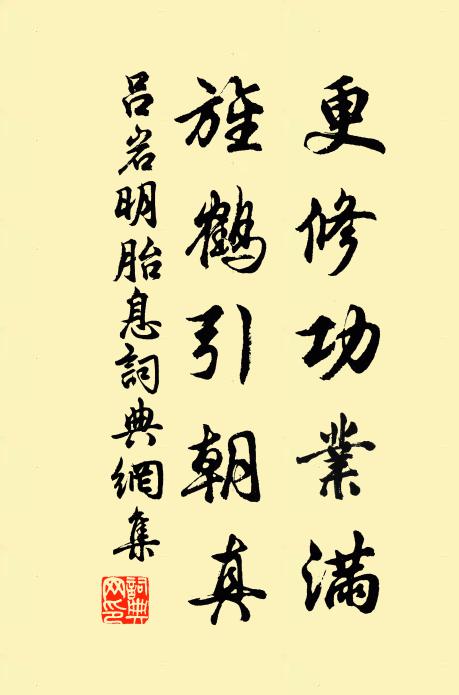 更修功業滿
旌鶴引朝真
吕岩明胎息詞典網集
詞典網印